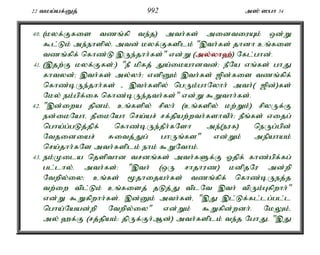 22 வமய்யக்னுத் 992 அஸ் ஸபா 34
40. (மலக்குகளை வணங்கி வந்த) அவர்கள் அனைவரையும் ஒன்று
கூட்டும் அந்நாளில், அவன் மலக்குகளிடம் "இவர்கள் தானா உங்களை
வணங்கிக் கொண்டு இருந்தார்கள்" என்று (அல்லாஹ்) கேட்பான்.
41. (இதற்கு மலக்குகள்:) "நீ மிகத் தூய்மையானவன்; நீயே எங்கள் பாது
காவலன்; இவர்கள் அல்லர்; எனினும் இவர்கள் ஜின்களை வணங்கிக்
கொண்டிருந்தார்கள் , இவர்களில் பெரும்பாலோர் அவர்( ஜின்)கள்
மேல் நம்பிக்கை கொண்டிருந்தவர்கள்" என்று கூறுவார்கள்.
42. "இன்றைய தினம், உங்களில் சிலர் (உங்களில் மற்றும்) சிலருக்கு
நன்மையோ, தீமையோ செய்யச் சக்தியற்றவர்களாவீர்; நீங்கள் எதைப்
பொய்ப்படுத்திக் கொண்டிருந்தீர்களோ அந்(நரக) நெருப்பின்
வேதனையைச் சுவைத்துப் பாருங்கள்" என்றும் அநியாயம்
செய்தார்களே அவர்களிடம் நாம் கூறுவோம்.
43. நம்முடைய தெளிவான வசனங்கள் அவர்களுக்கு ஓதிக் காண்பிக்கப்
பட்டால், அவர்கள்: "இவர் (ஒரு சாதாரண) மனிதரே அன்றி
வேறில்லை; உங்கள் மூதாதையர்கள் வணங்கிக் கொண்டிருந்த
வற்றை விட்டும் உங்களைத் தடுத்து விடவே இவர் விரும்புகிறார்"
என்று கூறுகிறார்கள். இன்னும் அவர்கள், "இது இட்டுக்கட்டப்பட்ட
பொய்யேயன்றி வேறில்லை" என்றும் கூறுகின்றனர். மேலும்,
அல் ஹக்கு (சத்தியம்; திருக்குர்ஆன்) அவர்களிடம் வந்த போது, "இது